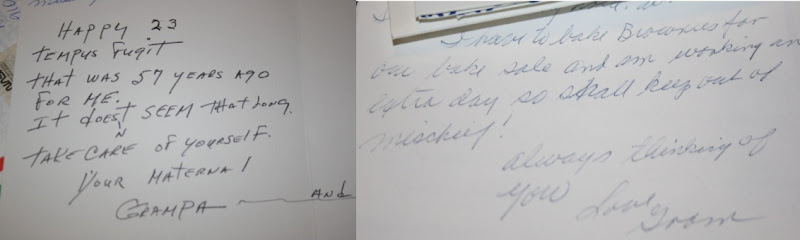 HAPPY 23
TEMPUS FUGIT
THAT WAS 57 YEARS AGO
FOR ME.
IT doesN'T SEEM that Long.
TAKE CARE OF YOURSELF.
YOUR MATERNAL
GRAMPA AND
I have to bake Brownies for
our bake sale and am working an
extra day so shall keep out of
mischief!
always thinking of
you Love
Gram